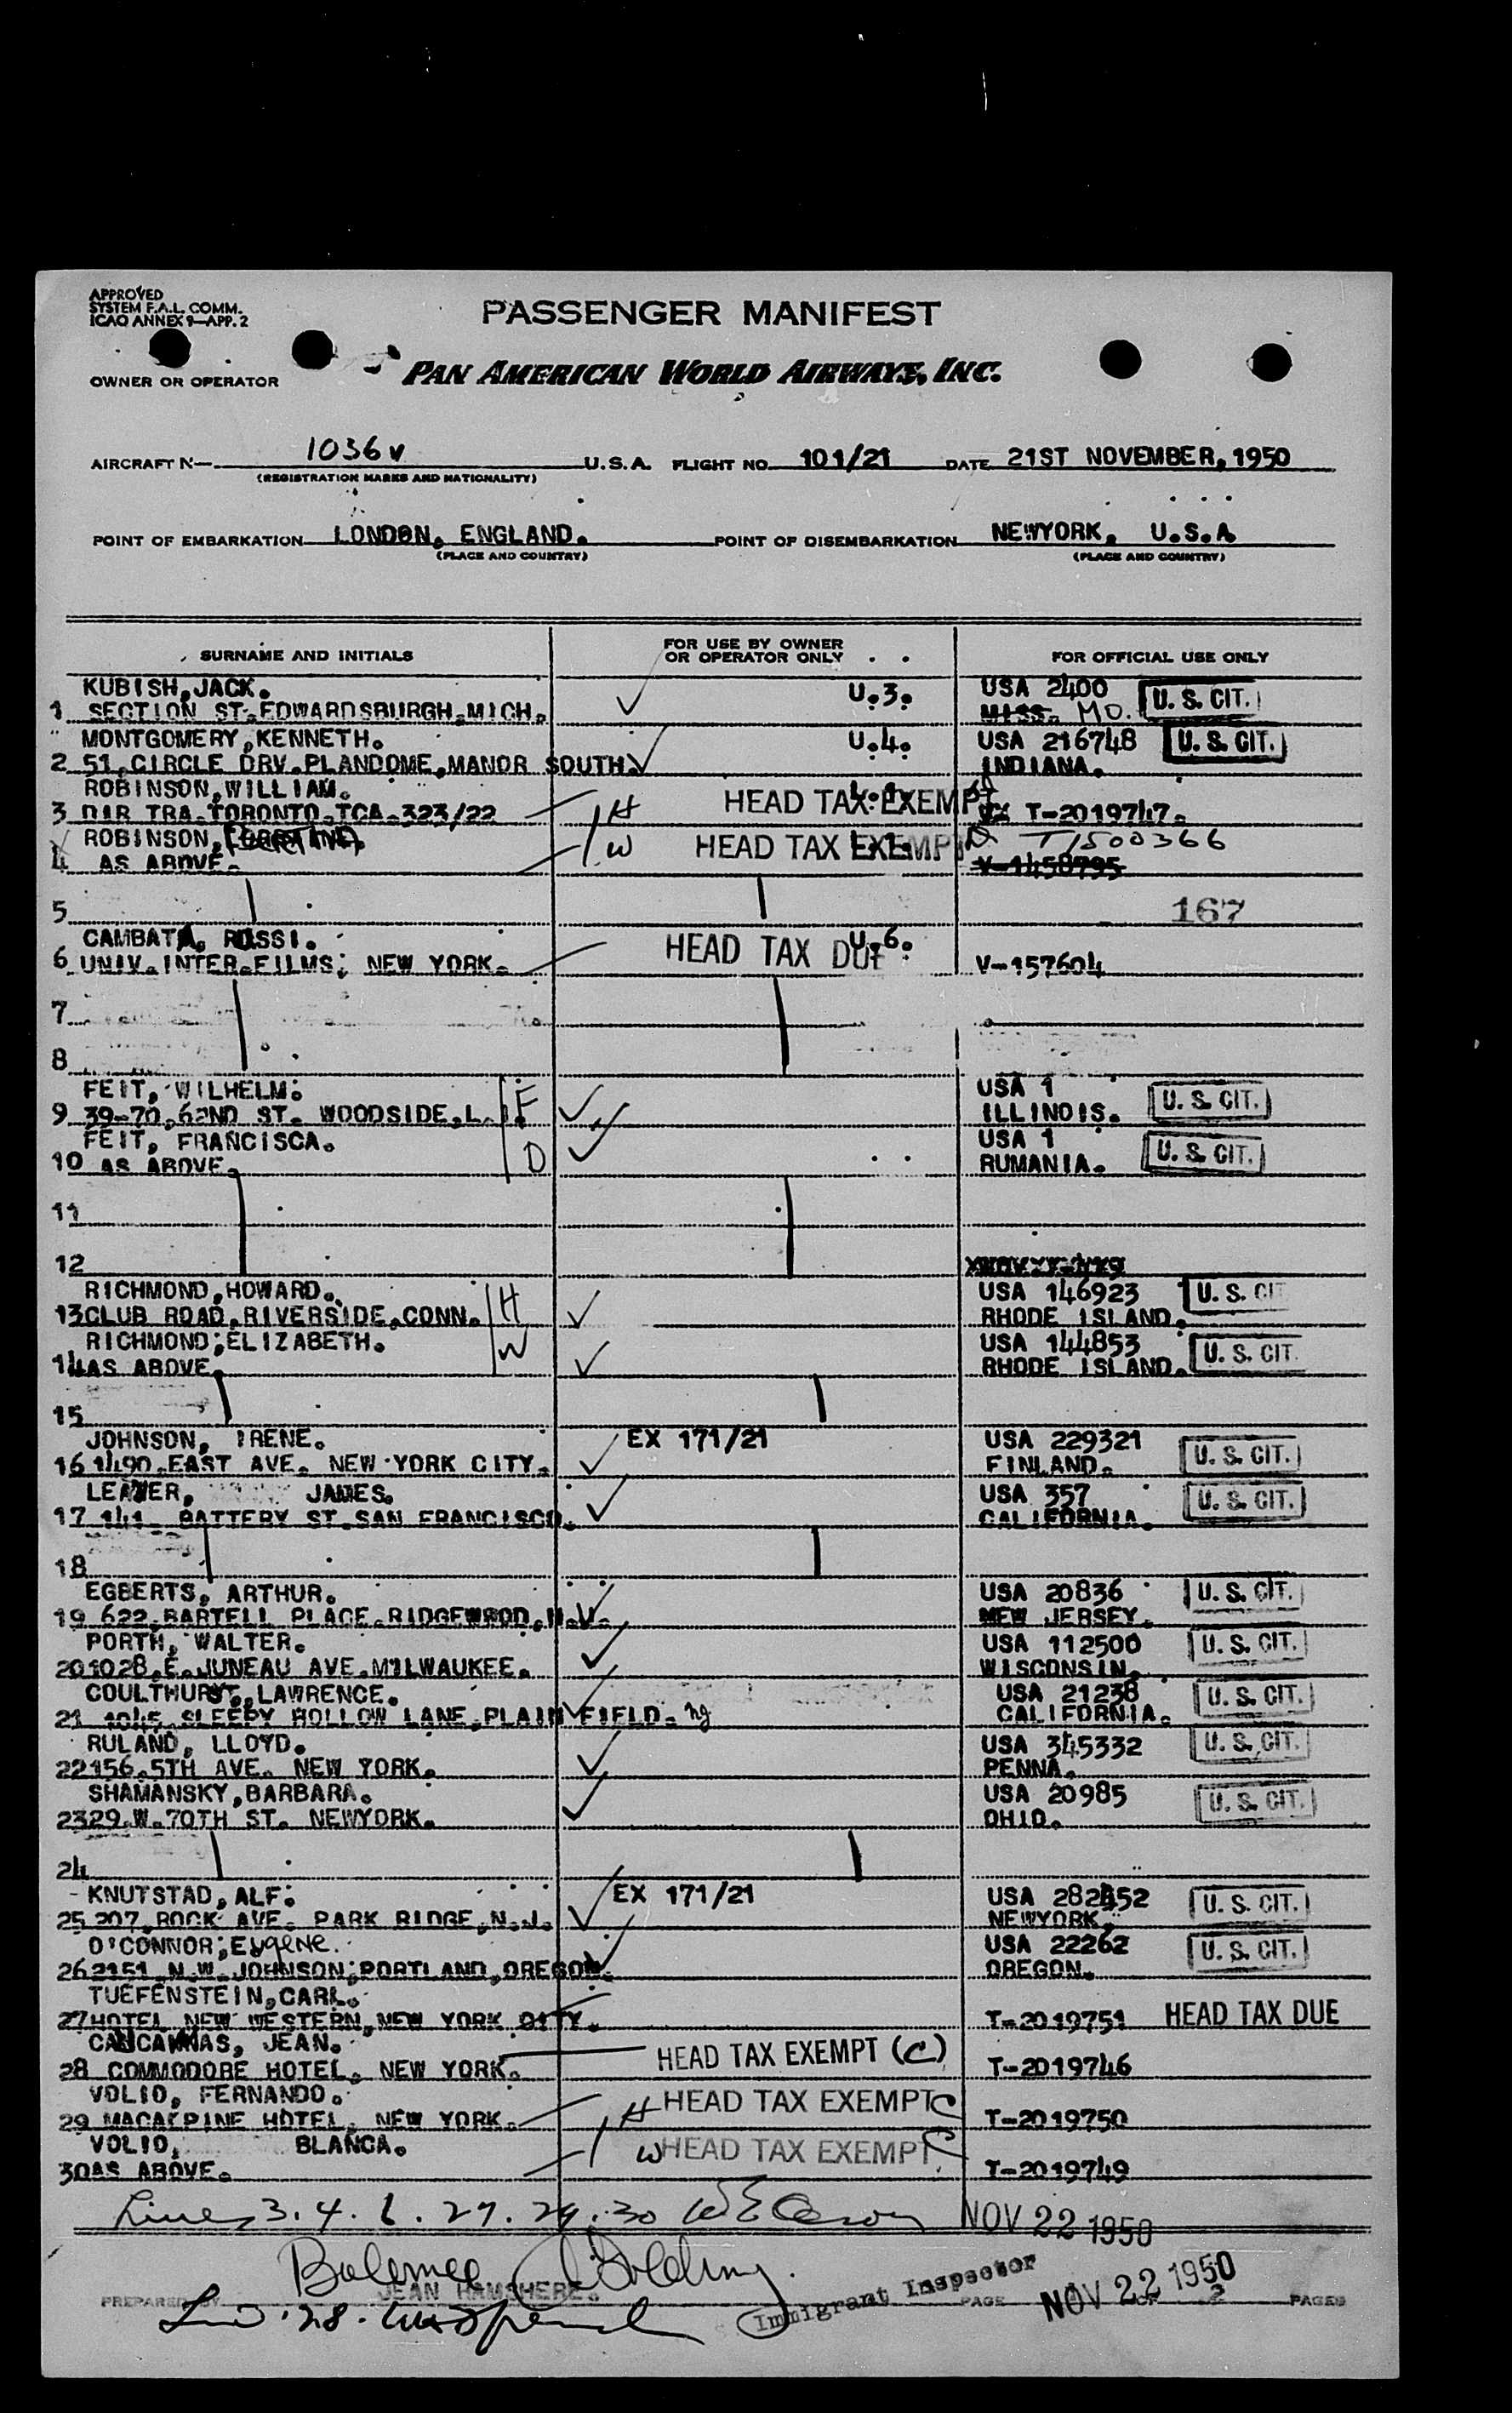 APPROVED
SYSTEM F.A.L. COMM.
ICAO ANNEX 9—APP. 2
PASSENGER MANIFEST
OWNER OR OPERATOR
PAN AMERICAN WORLD AIRWAYS, INC.
AIRCRAFT No 1036v U.S.A. FLIGHT NO. 101/21 DATE 21ST NOVEMBER, 1950
(REGISTRATION MARKS AND NATIONALITY)
POINT OF EMBARKATION LONDON, ENGLAND. POINT OF DISEMBARKATION NEWYORK, U.S.A.
(PLACE AND COUNTRY) (PLACE AND COUNTRY)
SURNAME AND INITIALS FOR USE BY OWNER OR OPERATOR ONLY FOR OFFICIAL USE ONLY
KUBISH, JACK. U.3. USA 2400 U. S. CIT.
1 SECTION ST. EDWARDSBURGH. MICH. MISS. MO.
MONTGOMERY, KENNETH. U.4. USA 216748 U. S. CIT.
2 51, CIRCLE DRV. PLANDOME, MANOR SOUTH. INDIANA.
ROBINSON, WILLIAM. HEAD TAX EXEMPT
3 DIR TRA. TORONTO. TCA. 323/22 H T-2019747.
ROBINSON, HEAD TAX EXEMPT T1500366
4 AS ABOVE. W V-1458795
5 167
CAMBATA, RUSSI. HEAD TAX DUE U.6.
6 UNIV. INTER. FILMS; NEW YORK. V-157604
7
8
FEIT, WILHELM. F USA 1 U. S. CIT.
9 39-70, 62ND ST. WOODSIDE, L. I. ILLINOIS.
FEIT, FRANCISCA. D USA 1 U. S. CIT.
10 AS ABOVE. RUMANIA.
11
12
RICHMOND, HOWARD. H USA 146923 U. S. CIT
13 CLUB ROAD, RIVERSIDE, CONN. RHODE ISLAND.
RICHMOND, ELIZABETH. W USA 144853 U. S. CIT.
14 AS ABOVE. RHODE ISLAND.
15
JOHNSON, IRENE. EX 171/21 USA 229321 U. S. CIT.
16 1490, EAST AVE. NEW YORK CITY. FINLAND.
JAMES. USA 357 U. S. CIT.
17 141 BATTERY ST. SAN FRANCISCO. CALIFORNIA.
18
EGBERTS, ARTHUR. USA 20836 U. S. CIT.
19 622, BARTELL PLACE. RIDGEWOOD, NEW JERSEY.
PORTH, WALTER. USA 112500 U. S. CIT.
20 1028. E. JUNEAU AVE. MILWAUKEE. WISCONSIN.
COULTHURST, LAWRENCE. USA 21238 U. S. CIT.
21 1045 SLEEPY HOLLOW LANE, PLAINFIELD. NJ CALIFORNIA.
RULAND, LLOYD. USA 345332 U. S. CIT.
22 156, 5TH AVE. NEW YORK. PENNA.
SHAMANSKY, BARBARA. USA 20985 U. S. CIT.
23 29. W. 70TH ST. NEWYORK. OHIO.
24
KNUTSTAD, ALF. EX 171/21 USA U. S. CIT.
25 207, ROCK AVE. PARK RIDGE, N.J. NEWYORK.
O'CONNOR, Eugene. USA 22262 U. S. CIT.
26 2151 N.W. JOHNSON, PORTLAND, OREGON. OREGON.
TUEFENSTEIN, CARL.
27 HOTEL NEW WESTERN, NEW YORK CITY. T-2019751 HEAD TAX DUE
JEAN. HEAD TAX EXEMPT (C)
28 COMMODORE HOTEL, NEW YORK. T-2019746
VOLIO, FERNANDO. H HEAD TAX EXEMPT C
29 MACALPINE HOTEL, NEW YORK. T-2019750
VOLIO, BLANCA. W HEAD TAX EXEMPT C
30 AS ABOVE. T-2019749
Lines 3. 4. 6. 27. 29. 30 NOV 22 1950
Balance
JEAN HAMSHERE. Immigrant Inspector NOV 22 1950
PREPARED BY PAGE 2 PAGES